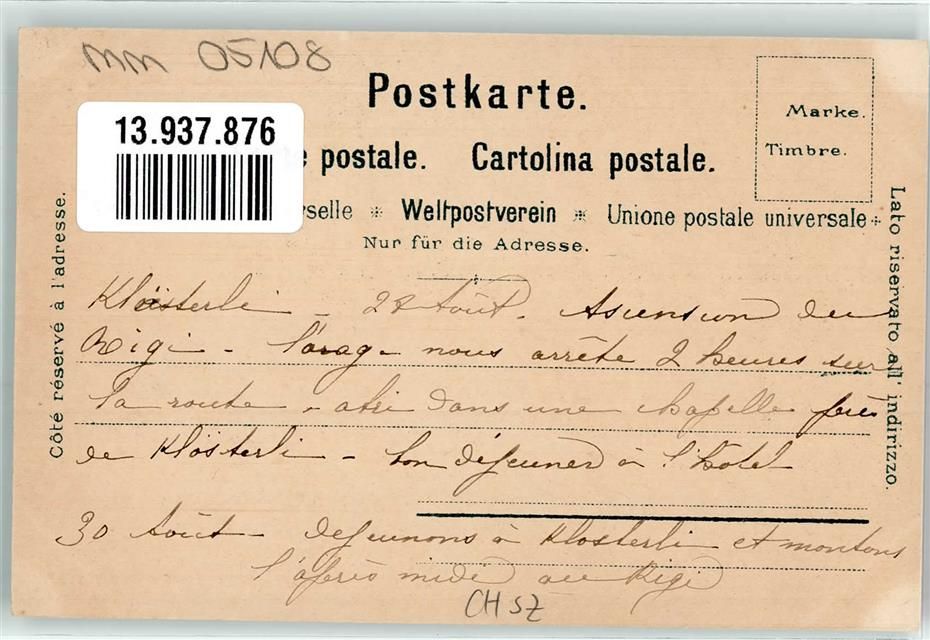 mm 05108
Postkarte.
Marke.
Timbre.
13.937.876
e postale. Cartolina postale.
rselle * Weltpostverein * Unione postale universale
Nur für die Adresse.
Côté réservé à l'adresse.
Lato riservato all' indirizzo.
Klösterli - 28 Août. Ascension du
Rigi - l'orage nous arrête 2 heures sur
la route - abri dans une chapelle près
de Klösterli - bon déjeuner à l'hôtel
30 Août - dejeunons à Klosterli et montons
l'après midi au Rigi
CH SZ